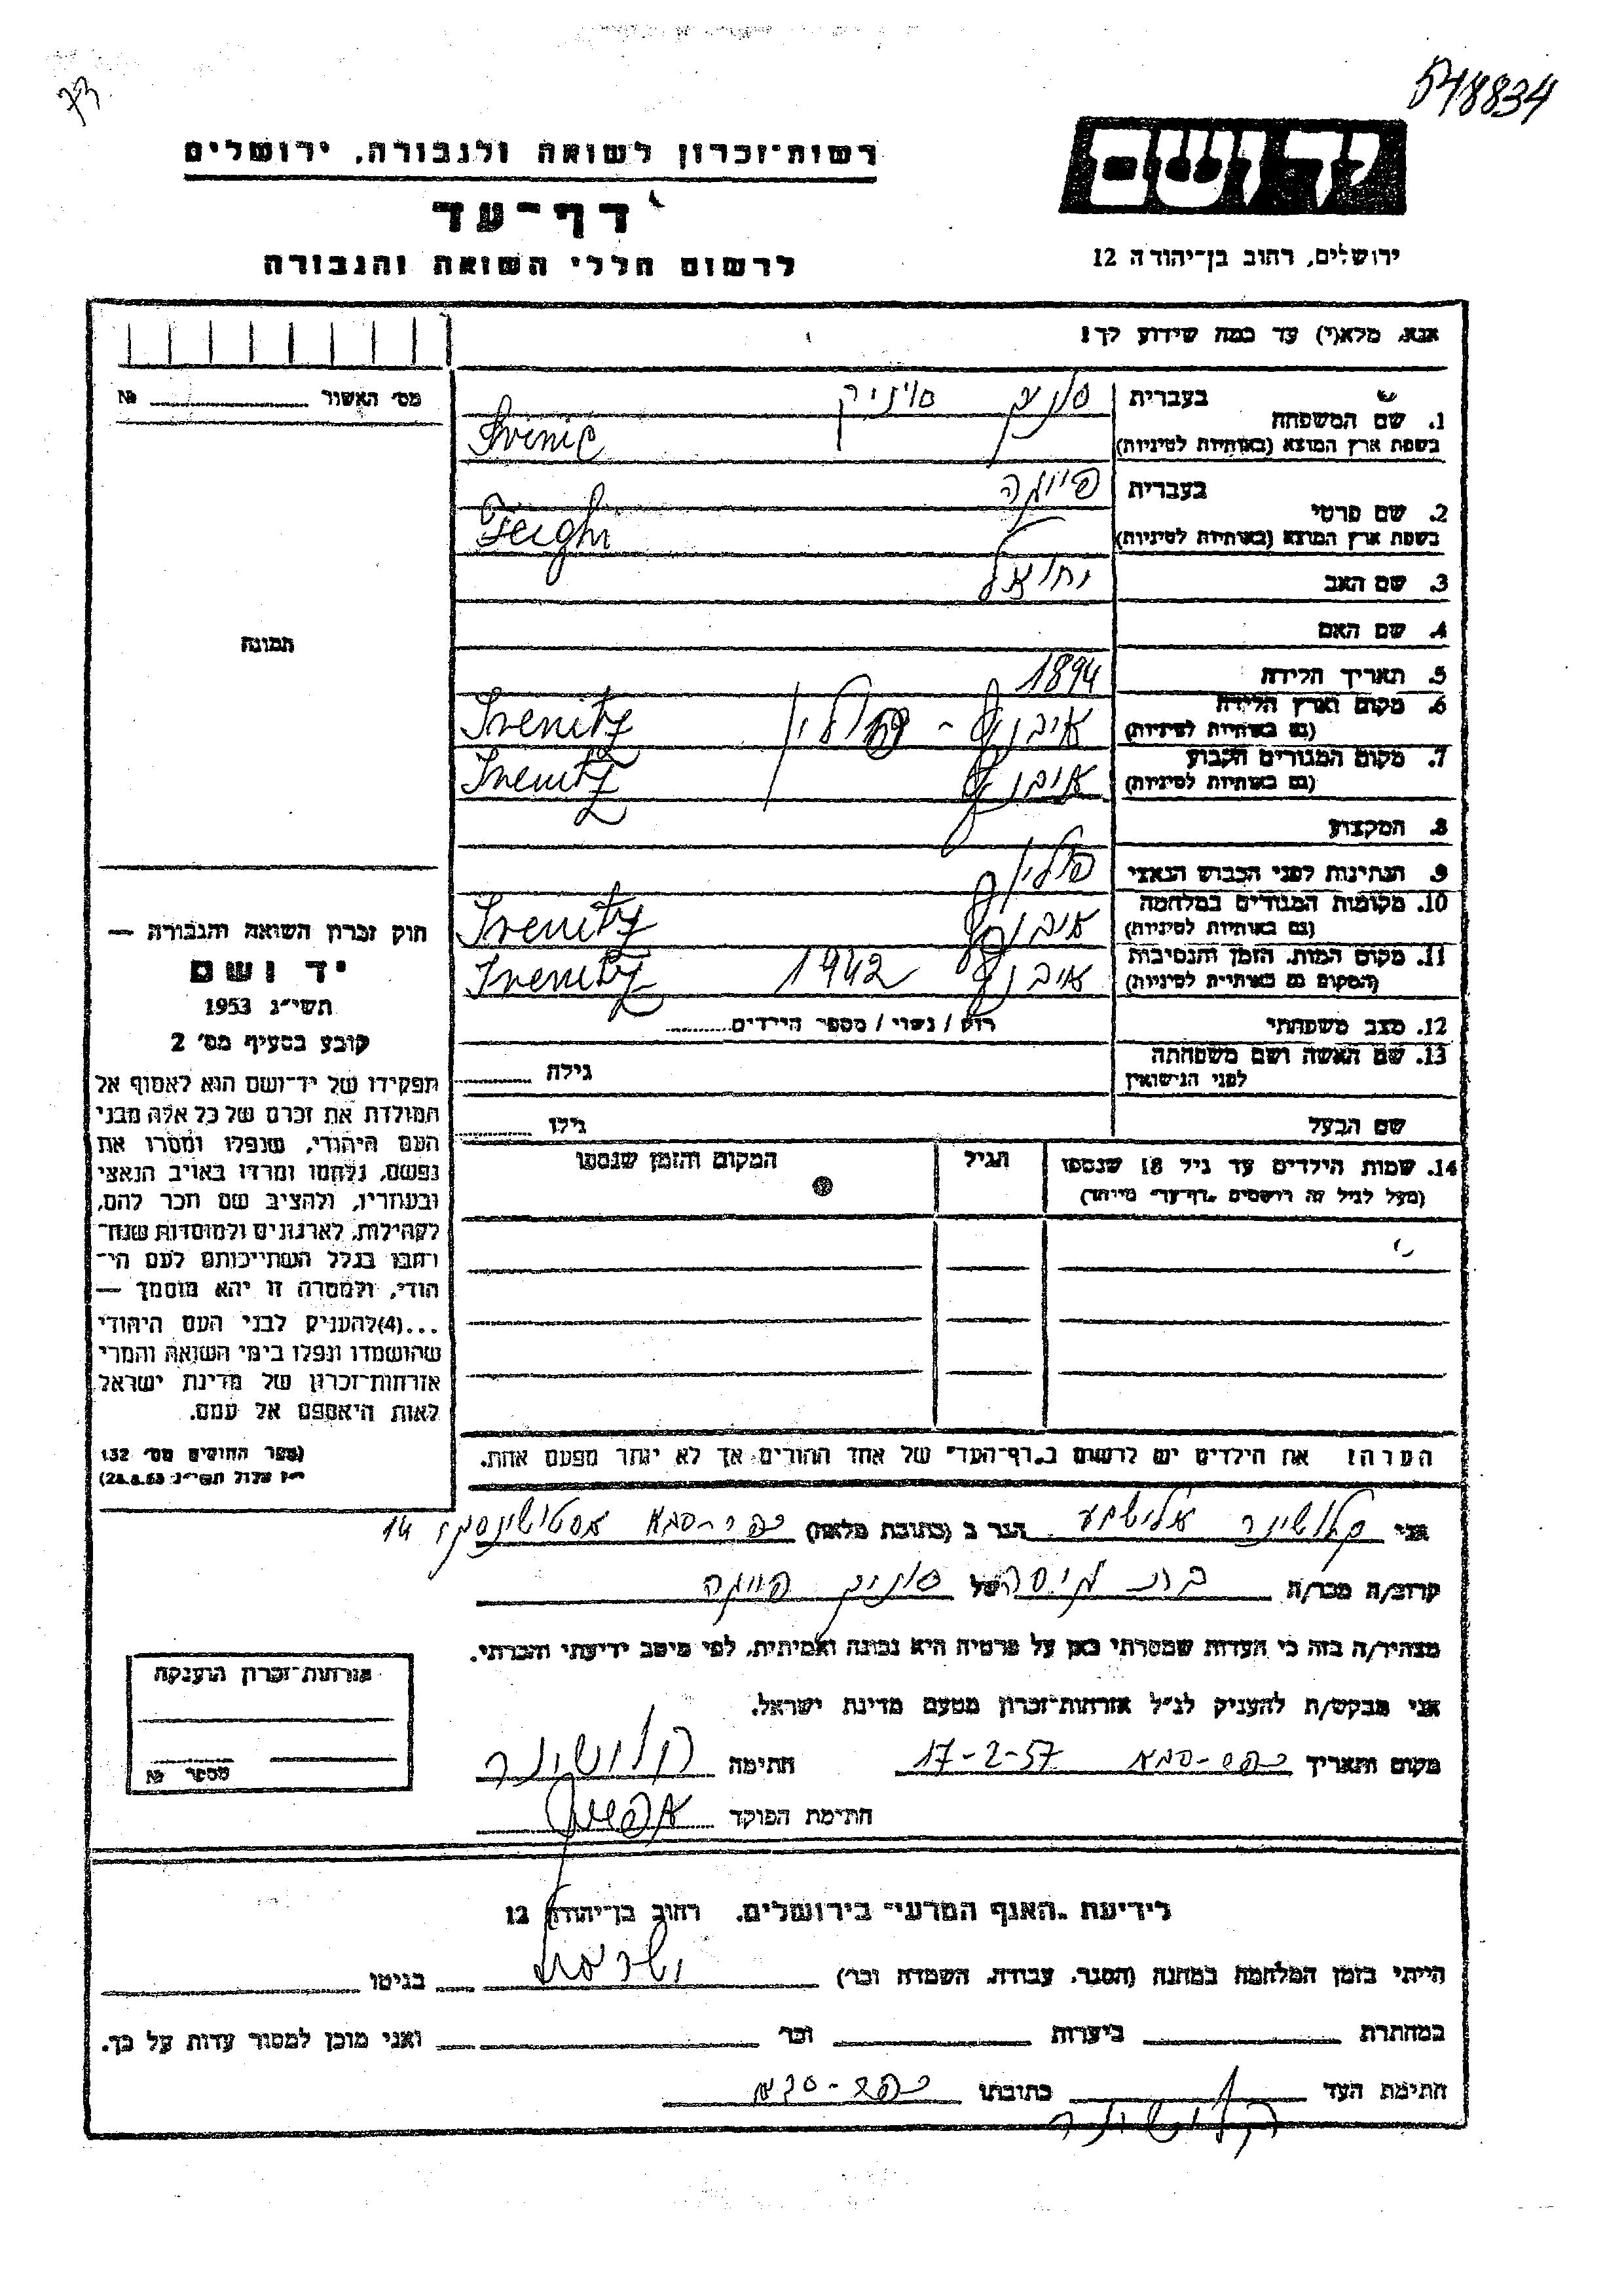 548834
רשות־זכרון לשואה ולגבורה, ירושלים
דף־עד
לרשום חללי השואה והגבורה
יד ושם
ירושלים, רחוב בן־יהודה 12
אנא, מלא(י) עד כמה שידוע לך!
מס׳ האשור № 
1. שם המשפחה בעברית סויניק
בשפת ארץ המוצא (באותיות לטיניות)
2. שם פרטי בעברית פייגה
בשפת ארץ המוצא (באותיות לטיניות) Feigh
3. שם האב
4. שם האם
5. תאריך הלידה 1894
6. מקום וארץ הלידה פולין
(גם באותיות לטיניות)
7. מקום המגורים הקבוע
(גם באותיות לטיניות)
8. המקצוע
9. הנתינות לפני הכבוש הנאצי פולין
10. מקומות המגורים במלחמה
(גם באותיות לטיניות)
11. מקום המות, הזמן והנסיבות 1942
(המקום גם באותיות לטיניות)
12. מצב משפחתי רוק / נשוי / מספר הילדים
13. שם האשה ושם משפחתה גילה
לפני הנישואין
שם הבעל גילו
14. שמות הילדים עד גיל 18 שנספו הגיל המקום והזמן שנספו
(מעל לגיל זה רושמים „דף־עד״ מיוחד)
תמונה
חוק זכרון השואה והגבורה —
יד ושם
תשי״ג 1953
קובע בסעיף מס׳ 2
תפקידו של יד־ושם הוא לאסוף אל
המולדת את זכרם של כל אלה מבני
העם היהודי, שנפלו ומסרו את
נפשם, נלחמו ומרדו באויב הנאצי
ובעוזריו, ולהציב שם וזכר להם,
לקהילות, לארגונים ולמוסדות שנח־
רבו בגלל השתייכותם לעם הי־
הודי, ולמטרה זו יהא מוסמך —
...(4)להעניק לבני העם היהודי
שהושמדו ונפלו בימי השואה והמרי
אזרחות־זכרון של מדינת ישראל
לאות היאספם אל עמם.
(ספר החוקים מס׳ 132
י״ז אלול תשי״ג 28.8.53)
הערה! את הילדים יש לרשום ב„דף־העד״ של אחד ההורים אך לא יותר מפעם אחת.
אני קלושינר אלישבע הגר ב (כתובת מלאה) כפר־סבא 14
קרוב/ה מכר/ה של סויניק פייגה
מצהיר/ה בזה כי העדות שמסרתי כאן על פרטיה היא נכונה ואמיתית, לפי מיטב ידיעתי והכרתי.
אני מבקש/ת להעניק לנ״ל אזרחות־זכרון מטעם מדינת ישראל.
מקום ותאריך כפר־סבא 17-2-57 חתימה קלושינר
חתימת הפוקד
אזרחות־זכרון הוענקה
מספר №
לידיעת „האגף המדעי״ בירושלים, רחוב בן־יהודה 12
הייתי בזמן המלחמה במחנה (הסגר, עבודה, השמדה וכו׳) בגיטו
במחתרת ביערות וכו׳ ואני מוכן למסור עדות על כך.
חתימת העד קלושינר כתובתו כפר־סבא